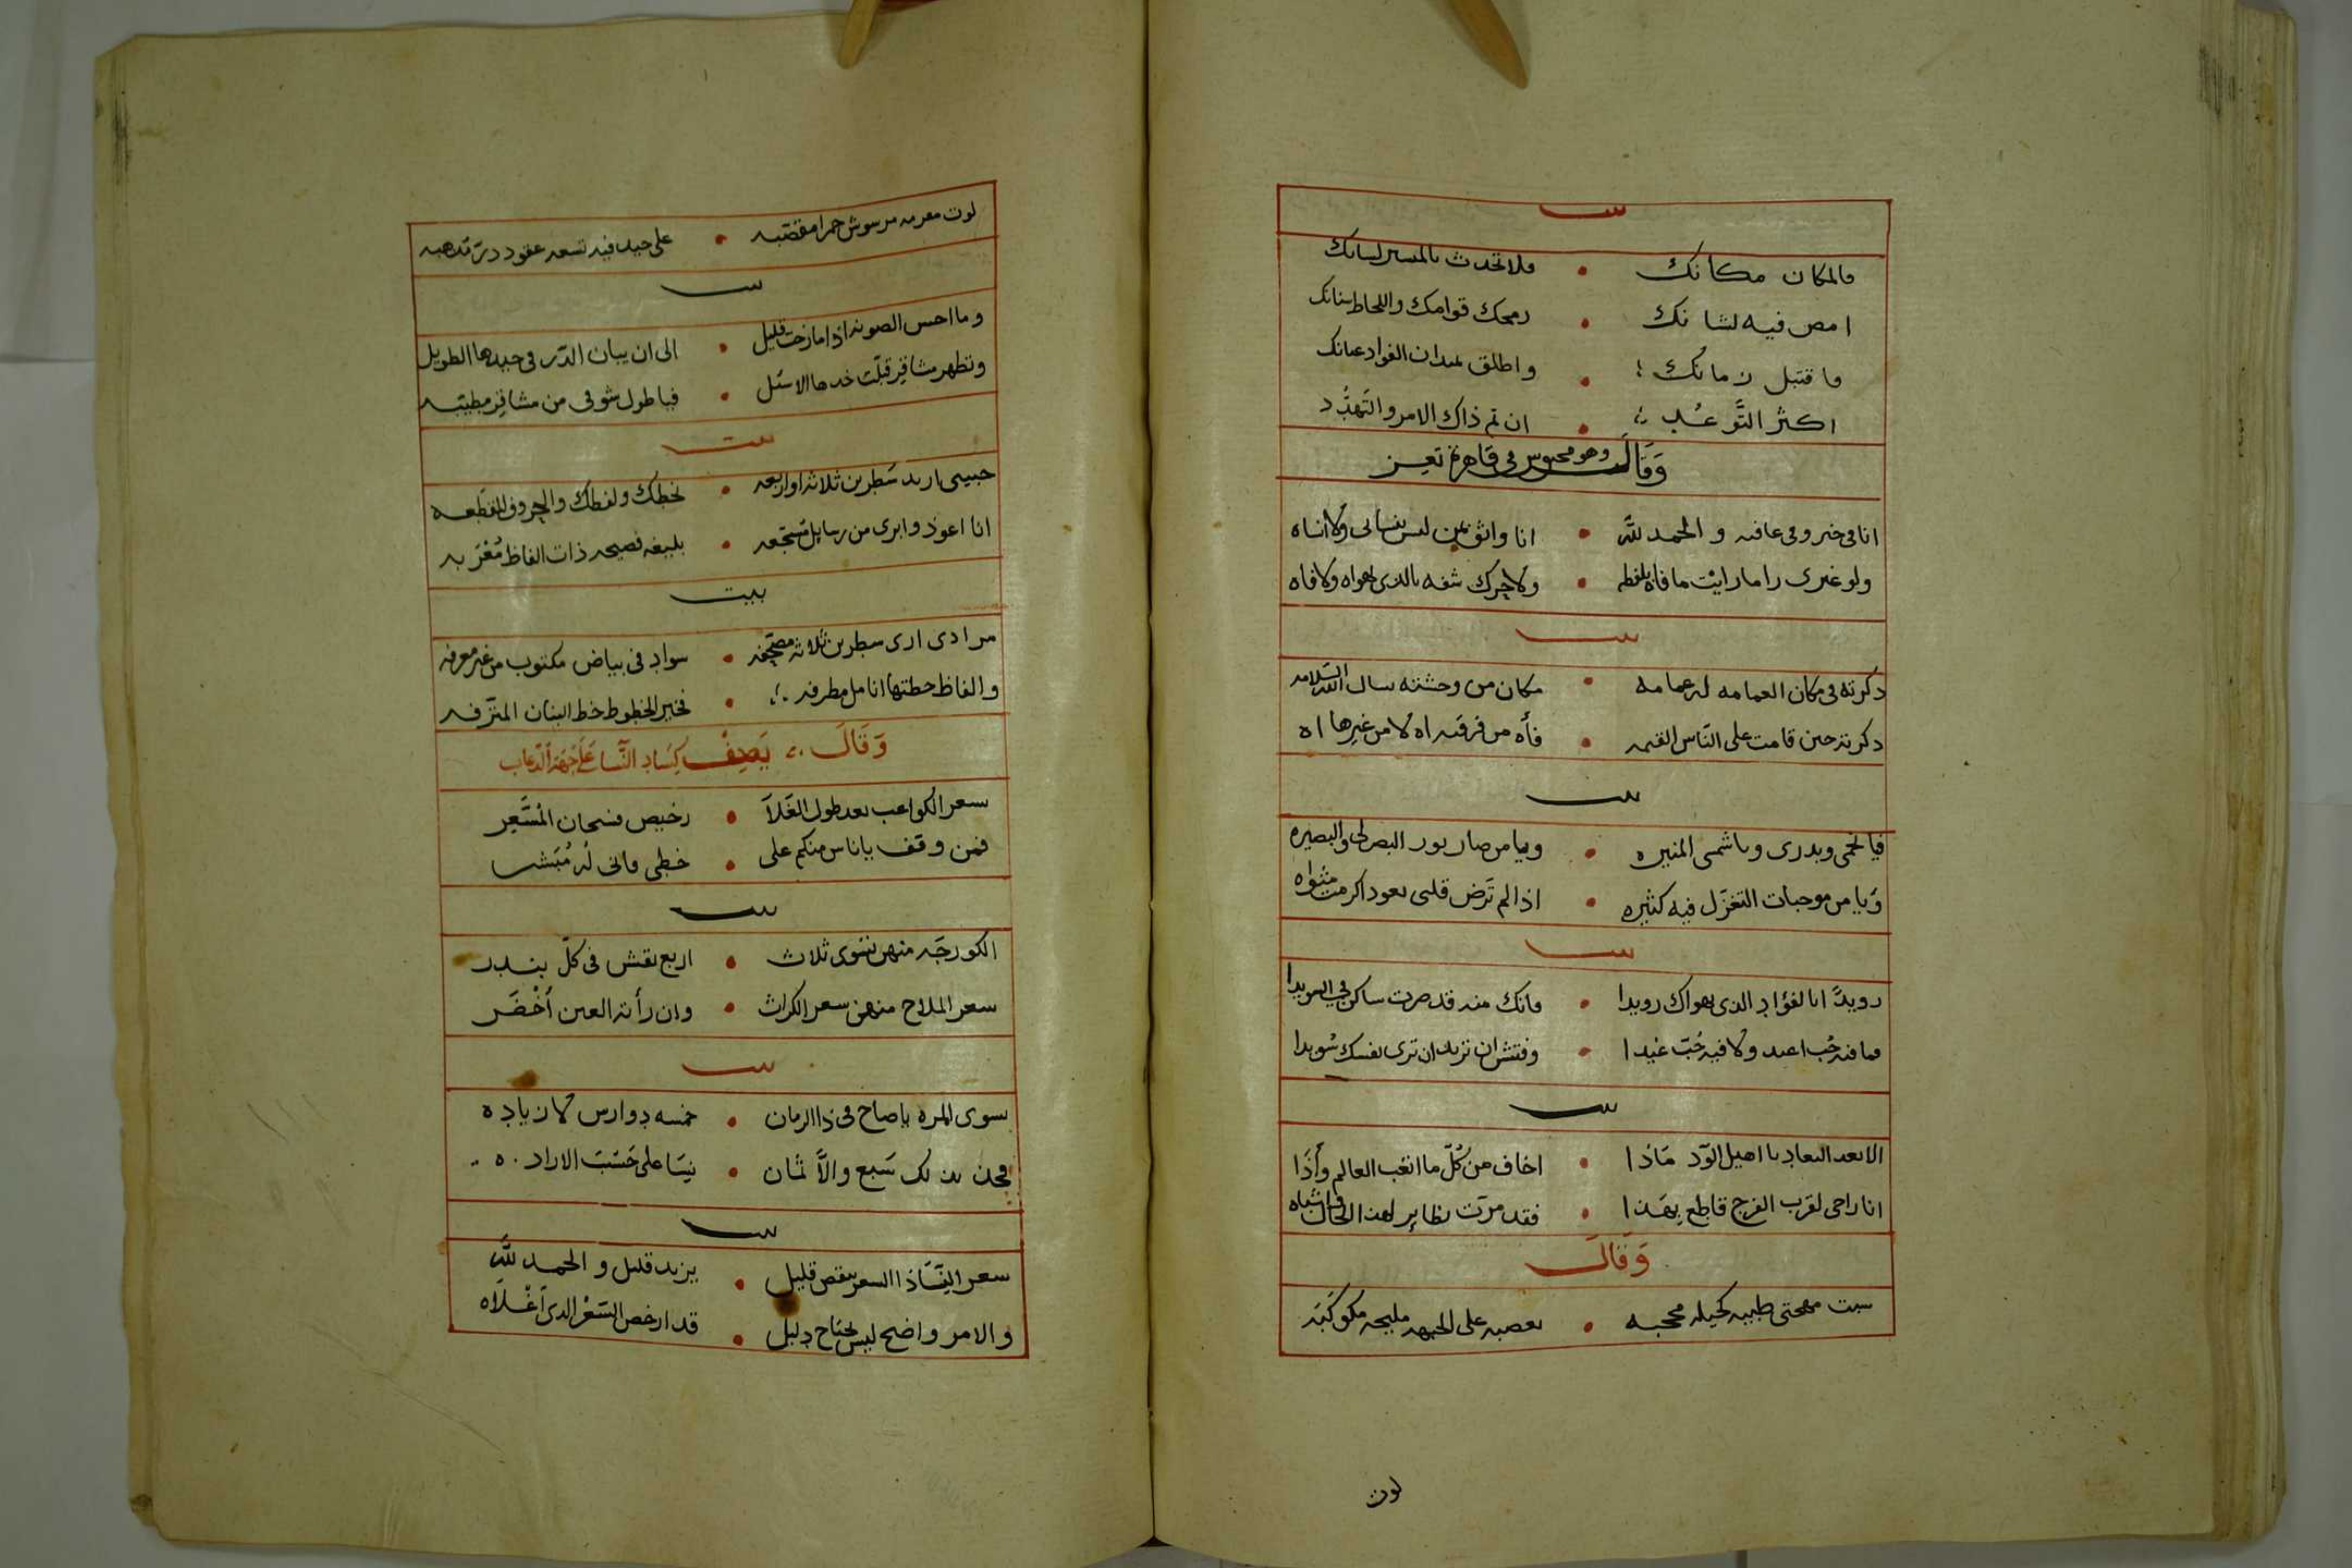 بيت
فالمكان مكانك • فلا تحدث بالمسير لسانك
امض فيه لشانك • رمحك قوامك واللحاظ سنانك
فاقتبل زمانك • واطلق لميدان الفواد عنانك
اكثر التَّوعُّد • ان تم ذاك الامر والتهدُّد
وَقَالَ وهو محبوس في قاهرة تعز
انا في خير وفي عافيه والحمد للّه • انا واثق بمن ليس ينساني ولا انساه
ولو غيري راما رايت ما فاه بلفظه • ولا حرك شفه بالذي يهواه ولا فاه
بيت
ذكرته في مكان العمامه له عمامه • مكان من وحشته سال الله السلامه
ذكرته حين قامت على الناس القيمه • فأه من فرقته اه لا من غيرها اه
بيت
فيا نجمي وبدري ويا شمسي المنيره • ويا من صار نور البصر لي والبصيره
وَيا من موجبات التغزّل فيه كثيره • اذا لم تَرض قلبي يعود اكرمت مثواه
بيت
رويدًا بالفؤاد الذي يهواك رويدا • فانك منه قد صرت ساكن في السويدا
فما فيه حُب اعيد ولا فيه حُبّ غيدا • وفتش ان تريد ان ترى نفسك سُويدا
بيت
الا بعد البعاد يا اهيل الوّد مَاذا • اخاف من كُلّ ما اتعب العالم وأذَا
انا راجي لقرب الفرج قاطع بِهَذا • فقد مرّت نظاير لهذا الحال واشباه
وَقَالَ
سبت مهجتي ظبيه كحيله محجبه • بعصبه على الجبهه مليحه مكوكَبَه
لون
لون معرمه مرسوش حمرا مقصّبه • على جيد فيه تسعه عقود درّ مذهبه
بيت
وما احسن الصونه اذا مازحت قليل • الى ان يبان الدّر في جيدها الطويل
وتظهر مشاقِر قبّلت خدها الاسَيل • فيا طول شوقي من مشاقِر مطيّبه
بيت
حبيبي اريد سَطرين ثلاثه او اربعه • بخطك ولفظك والحروف المقطعه
انا اعوذ وابرى من رسايل مسجّعه • بليغه فصيحه ذات الفاظ مُعْرَبه
بيت
مرادي ارى سطرين ثلاثه مصحّفه • سواد في بياض مكتوب من غير معرفه
والفاظ خطتها انامل مطرفه • فخير الخطوط خط البنان المترّفه
وَقَالَ يَصِفُ كِسَاد النَّسا عَلَى جِهَة الدّعاب
سعر الكواعب بعد طول الغَلاَ • رخيص فسبحان المُسَّعِر
فمن وقف يا ناس منكم على • خطي فاني لَه مُبَشر
بيت
الكورجَه منهن تسوى ثلاث • اربع بقش في كلّ بندر
سعر الملاح منهن سعر الكراث • وان رأته العين أخْضَر
بيت
يسوى المره يا صاح في ذا الزمان • خمسه دوارس لا زياده
فخذ بذلك سَبع والاَّ ثمان • نِسَا على حَسَب الاراده
بيت
سعر النِّسَا ذا السعر ينقص قليل • يزيد قليل والحمد للّه
والامر واضح ليس يحتاج دليل • قد ارخص السّعْر الذي أغْلاَه